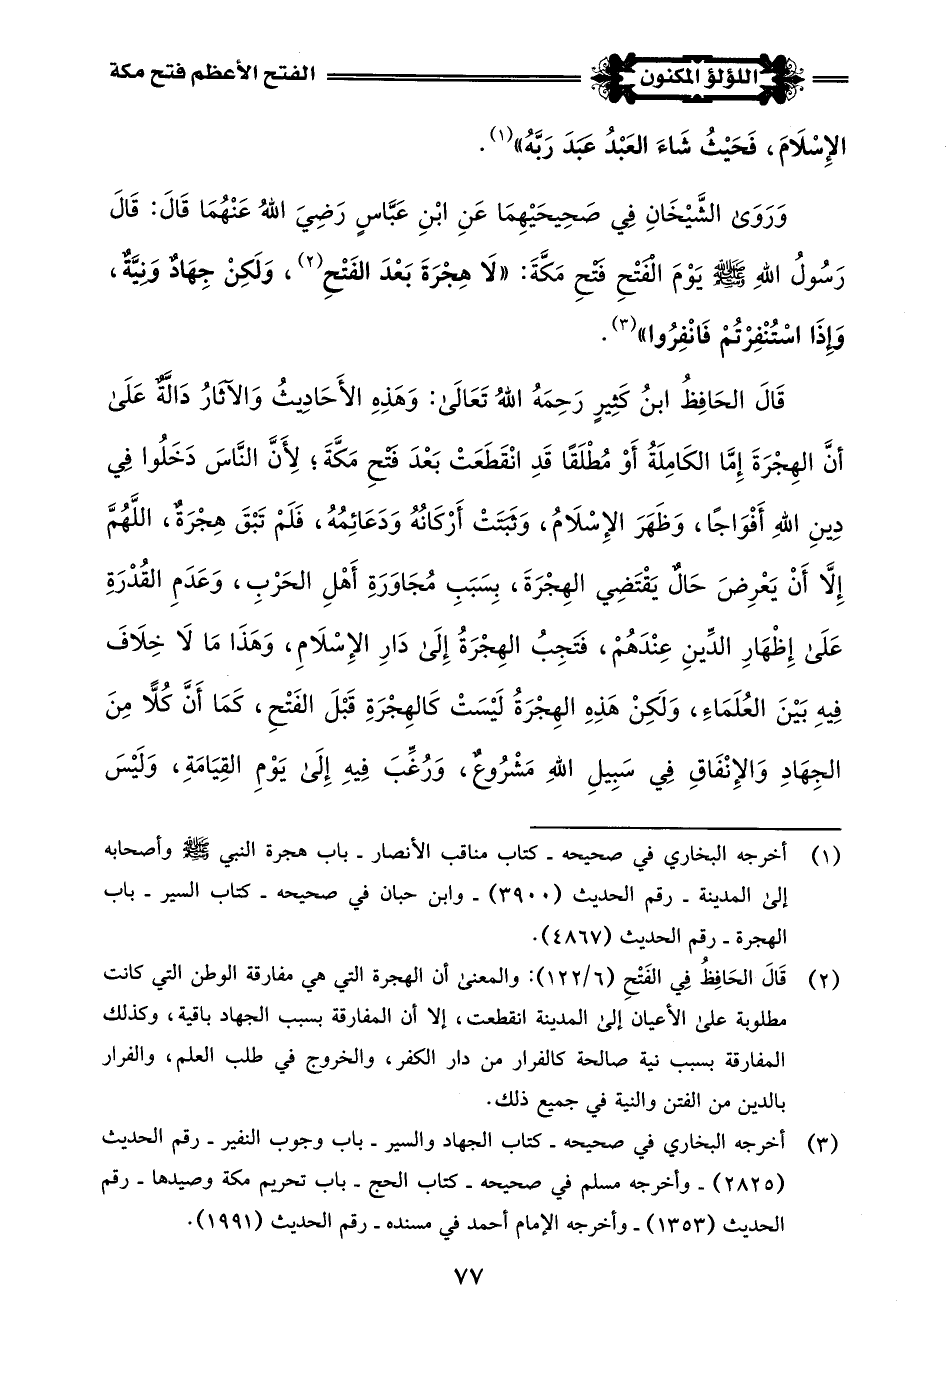 اللؤلؤ المكنون الفتح الأعظم فتح مكة
الإِسْلَامَ، فَحَيْثُ شَاءَ العَبْدُ عَبَدَ رَبَّهُ»(١).
وَرَوَىٰ الشَّيْخَانِ فِي صَحِيحَيْهِمَا عَنِ ابْنِ عَبَّاسٍ رَضِيَ اللهُ عَنْهُمَا قَالَ: قَالَ
رَسُولُ اللهِ ﷺ يَوْمَ الْفَتْحِ فَتْحِ مَكَّةَ: «لَا هِجْرَةَ بَعْدَ الفَتْحِ(٢)، وَلَكِنْ جِهَادٌ وَنِيَّةٌ،
وَإِذَا اسْتُنْفِرْتُمْ فَانْفِرُوا»(٣).
قَالَ الحَافِظُ ابنُ كَثِيرٍ رَحِمَهُ اللهُ تَعَالَىٰ: وَهَذِهِ الأَحَادِيثُ وَالآثَارُ دَالَّةٌ عَلَىٰ
أَنَّ الهِجْرَةَ إِمَّا الكَامِلَةُ أَوْ مُطْلَقًا قَدِ انْقَطَعَتْ بَعْدَ فَتْحِ مَكَّةَ؛ لِأَنَّ النَّاسَ دَخَلُوا فِي
دِينِ اللهِ أَفْوَاجًا، وَظَهَرَ الإِسْلَامُ، وَثَبَتَتْ أَرْكَانُهُ وَدَعَائِمُهُ، فَلَمْ تَبْقَ هِجْرَةٌ، اللَّهُمَّ
إِلَّا أَنْ يَعْرِضَ حَالٌ يَقْتَضِي الهِجْرَةَ، بِسَبَبِ مُجَاوَرَةِ أَهْلِ الحَرْبِ، وَعَدَمِ القُدْرَةِ
عَلَىٰ إِظْهَارِ الدِّينِ عِنْدَهُمْ، فَتَجِبُ الهِجْرَةُ إِلَىٰ دَارِ الإِسْلَامِ، وَهَذَا مَا لَا خِلَافَ
فِيهِ بَيْنَ العُلَمَاءِ، وَلَكِنْ هَذِهِ الهِجْرَةُ لَيْسَتْ كَالهِجْرَةِ قَبْلَ الفَتْحِ، كَمَا أَنَّ كُلًّا مِنَ
الجِهَادِ وَالإِنْفَاقِ فِي سَبِيلِ اللهِ مَشْرُوعٌ، وَرُغِّبَ فِيهِ إِلَىٰ يَوْمِ القِيَامَةِ، وَلَيْسَ
(١) أخرجه البخاري في صحيحه ـ كتاب مناقب الأنصار ـ باب هجرة النبي ﷺ وأصحابه
إلىٰ المدينة ـ رقم الحديث (٣٩٠٠) ـ وابن حبان في صحيحه ـ كتاب السير ـ باب
الهجرة ـ رقم الحديث (٤٨٦٧).
(٢) قَالَ الحَافِظُ فِي الفَتْحِ (١٢٢/٦): والمعنىٰ أن الهجرة التي هي مفارقة الوطن التي كانت
مطلوبة علىٰ الأعيان إلىٰ المدينة انقطعت، إلا أن المفارقة بسبب الجهاد باقية، وكذلك
المفارقة بسبب نية صالحة كالفرار من دار الكفر، والخروج في طلب العلم، والفرار
بالدين من الفتن والنية في جميع ذلك.
(٣) أخرجه البخاري في صحيحه ـ كتاب الجهاد والسير ـ باب وجوب النفير ـ رقم الحديث
(٢٨٢٥) ـ وأخرجه مسلم في صحيحه ـ كتاب الحج ـ باب تحريم مكة وصيدها ـ رقم
الحديث (١٣٥٣) ـ وأخرجه الإمام أحمد في مسنده ـ رقم الحديث (١٩٩١).
٧٧